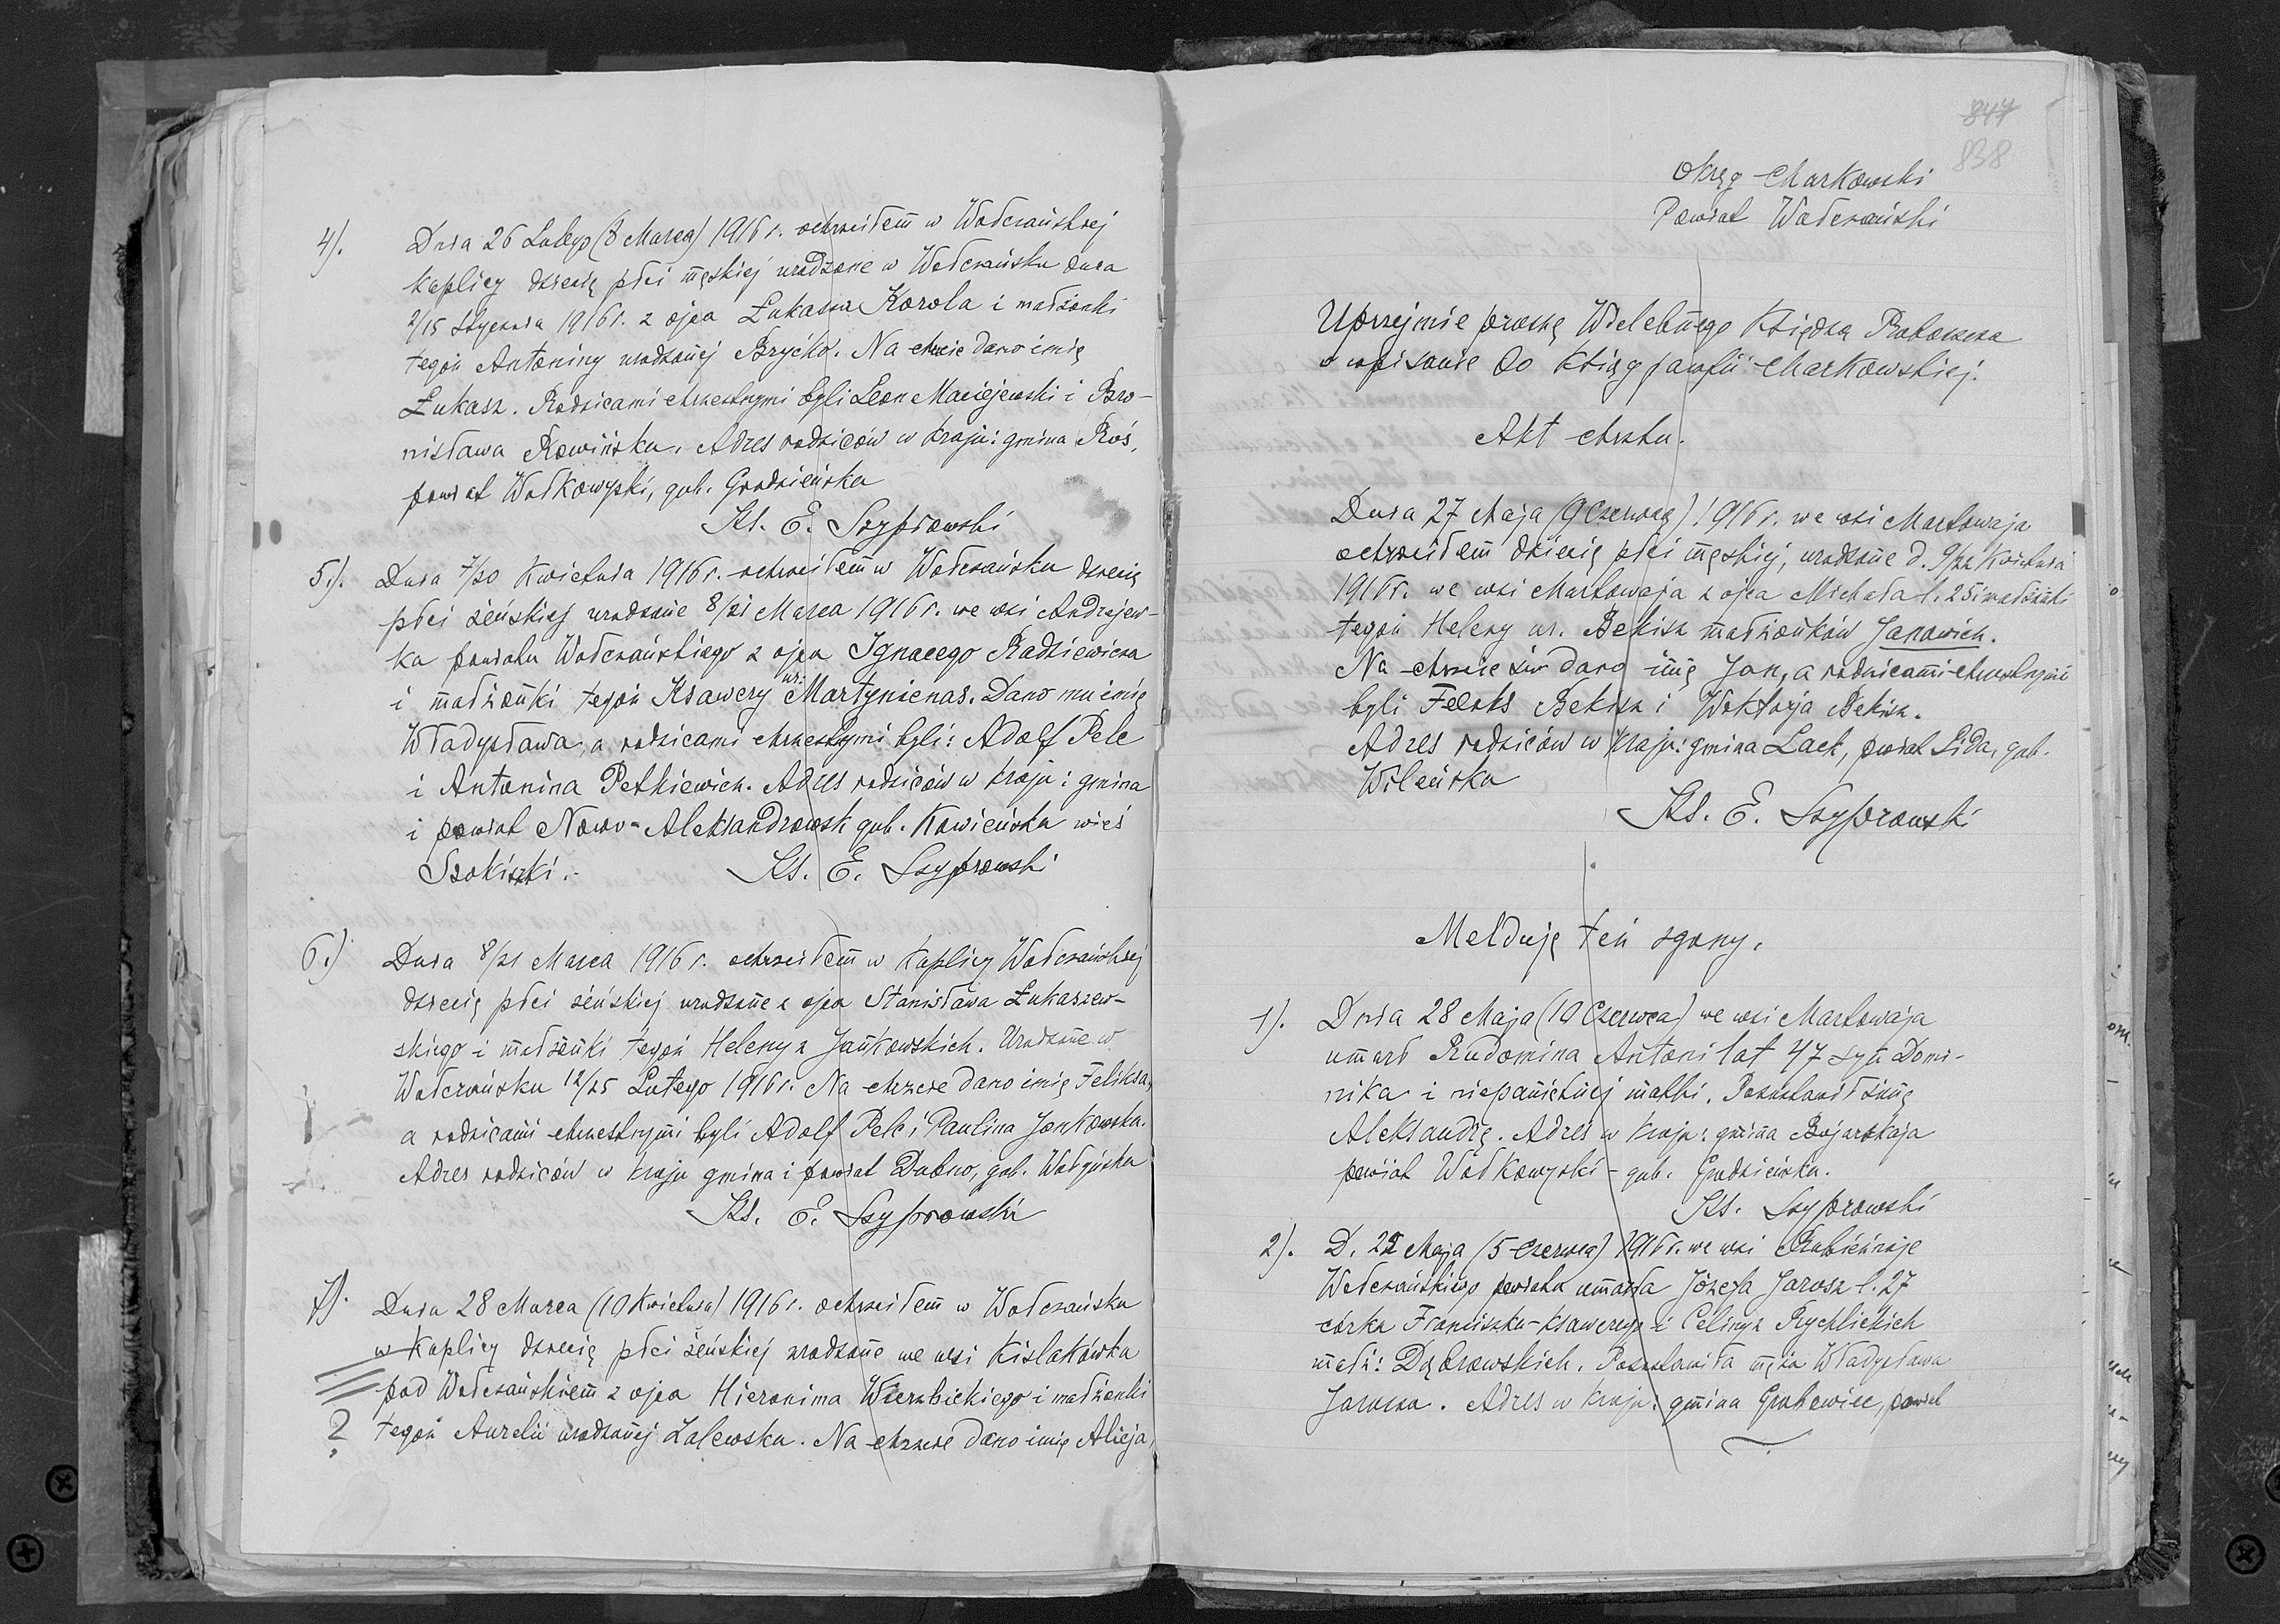 4). Dnia 26 Lutego (8 Marca) 1916 r. ochrzciłem w Wołczańskiej
kaplicy dziecię płci męskiej urodzone w Wołczańsku dnia
2/15 Stycznia 1916 r. z ojca Łukasza Korola i małżonki
tegoż Antoniny urodzonej Bryćko. Na chrzcie dano imię
Łukasz. Rodzicami chrzestnymi byli Leon Maciejewski i Bro-
nisława Rowińska. Adres rodziców w kraju: gmina Roś,
powiat Wołkowyski, gub. Grodzieńska
Ks. E. Szyprowski
5). Dnia 7/20 Kwietnia 1916 r. ochrzciłem w Wołczańsku dziecię
płci żeńskiej urodzone 8/21 Marca 1916 r. we wsi Andrejew-
ka powiatu Wołczańskiego z ojca Ignacego Radziewicza
i małżonki tegoż Ksawery ur. Martynienas. Dano mu imię
Władysława, a rodzicami chrzestnymi byli: Adolf Pele
i Antonina Petkiewicz. Adres rodziców w kraju: gmina
i powiat Nowo-Aleksandrowsk gub. Kowieńska wieś
Szokiszki.
Ks. E. Szyprowski
6.) Dnia 8/21 Marca 1916 r. ochrzciłem w kaplicy Wołczańskiej
dziecię płci żeńskiej urodzone z ojca Stanisława Łukaszew-
skiego i małżonki tegoż Heleny z Jankowskich. Urodzone w
Wołczańsku 12/25 Lutego 1916 r. Na chrzcie dano imię Feliksa,
a rodzicami chrzestnymi byli Adolf Pele i Paulina Jankowska.
Adres rodziców w kraju gmina i powiat Dubno, gub. Wołyńska
Ks. E. Szyprowski
7). Dnia 28 Marca (10 Kwietnia) 1916 r. ochrzciłem w Wołczańsku
w kaplicy dziecię płci żeńskiej urodzone we wsi Kislakówka
pod Wołczańskiem z ojca Hieronima Wierzbickiego i małżonki
? tegoż Aurelii urodzonej Zalewska. Na chrzcie dano imię Alicja,
847
838
Okręg Charkowski
Powiat Wołczański
Uprzejmie proszę Wielebnego Księdza Proboszcza
o wpisanie do ksiąg parafii Charkowskiej.
Akt chrztu.
Dnia 27 Maja (9 Czerwca) 1916 r. we wsi Martowaja
ochrzciłem dziecię płci męskiej, urodzone d. 9/22 Kwietnia
1916 r. we wsi Martowaja z ojca Michała l. 25 i małżonki
tegoż Heleny ur. Bekisz małżonków Janowicz.
Na chrzcie św. dano imię Jan, a rodzicami chrzestnymi
byli Feliks Bekisz i Wiktorja Bekisz.
Adres rodziców w kraju: gmina Lack, powiat Lida, gub.
Wileńska
Ks. E. Szyprowski
Melduję też zgony.
1). Dnia 28 Maja (10 Czerwca) we wsi Martowaja
umarł Rudomina Antoni lat 47 syn Domi-
nika i niepamiętnej matki. Pozostawił żonę
Aleksandrę. Adres w kraju: gmina Bojarskaja
powiat Wołkowyski - gub. Grodzieńska.
Ks. Szyprowski
2). D. 22 Maja (5 Czerwca) 1916 r. we wsi
Wołczańskiego powiatu umarła Józefa Jarosz l. 27
córka Franciszka-Ksawerego i Celiny z Rychlickich
małż: Dąbrowskich. Pozostawiła męża Władysława
Jarosza. Adres w kraju: gmina Grabowiec, powiat